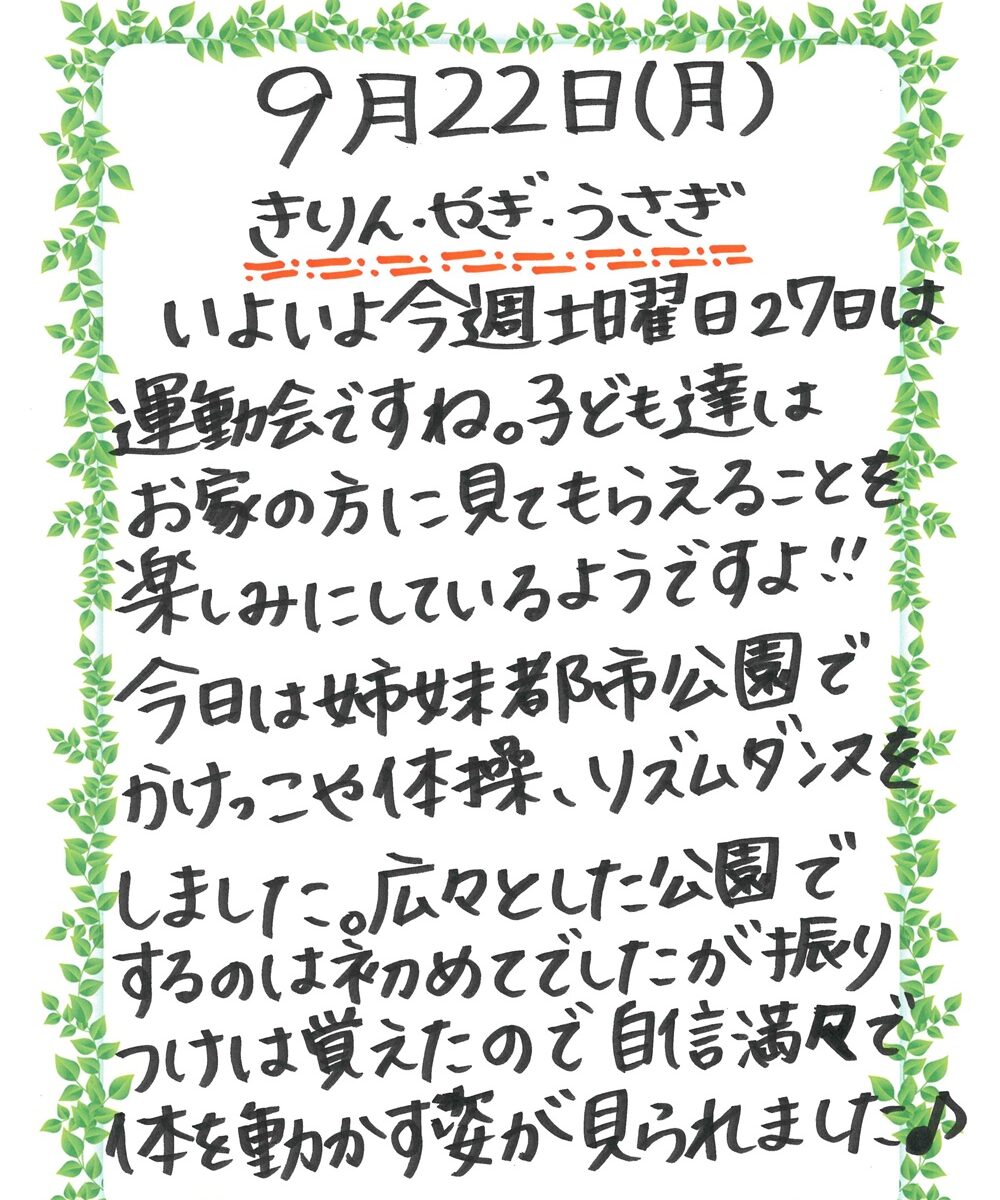 9月22日(月)
きりん・やぎ・うさぎ
いよいよ今週土曜日27日は
運動会ですね。子ども達は
お家の方に見てもらえることを
楽しみにしているようですよ!!
今日は姉妹都市公園で
かけっこや体操、リズムダンスを
しました。広々とした公園で
するのは初めてでしたが振り
つけは覚えたので自信満々で
体を動かす姿が見られました♪